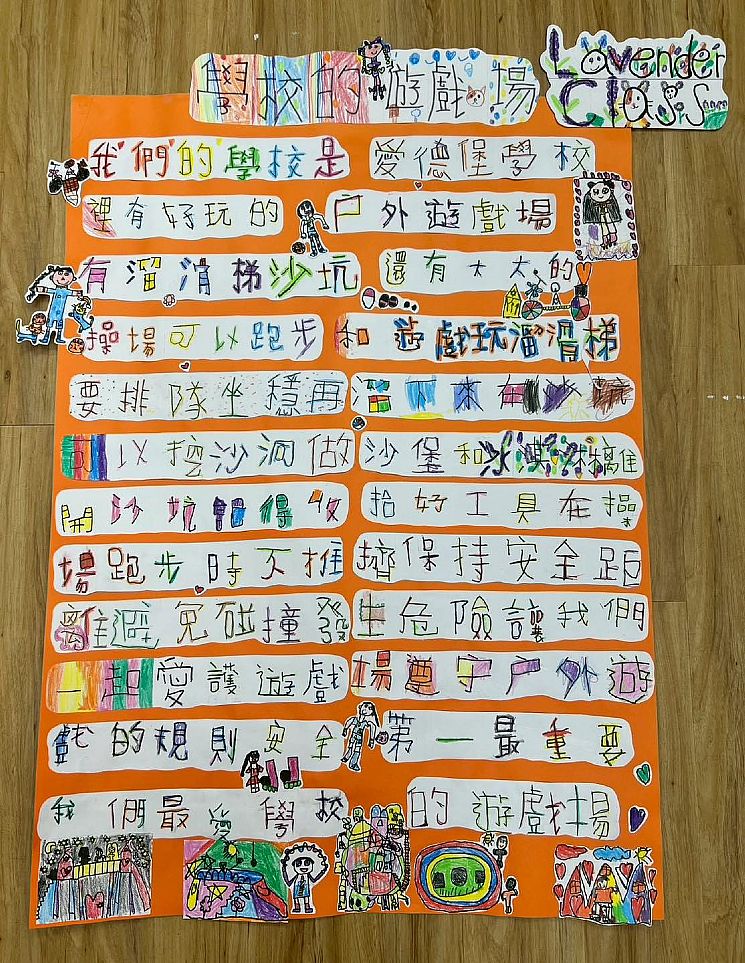 學校的遊戲場
Lavender
Class
我們的學校是 愛德堡學校
裡有好玩的 戶外遊戲場
有溜滑梯沙坑 還有大大的
操場可以跑步 和遊戲玩溜滑梯
要排隊坐穩再 溜下來在沙坑
可以挖沙洞做 沙堡和冰淇淋離
開沙坑記得收 拾好工具在操
場跑步時不推 擠保持安全距
離避免碰撞發 生危險讓我們
一起愛護遊戲 場遵守戶外遊
戲的規則安全 第一最重要
我們最愛學校 的遊戲場